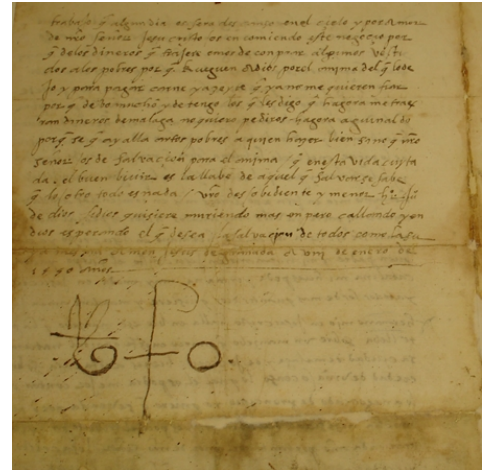 trabajo q̃ algun dia os sera descanso en el çielo y por amor
de nr̃o señor Jesu cristo os encomiendo este negoçio por
q̃ de los dineros q̃ trajere emos de conprar algunos vesti
dos a los pobres por q̃ Rueguen a dios por el anima del q̃ lo de
jo y para pagar carne y azeyte q̃ ya no me quieren fiar
por q̃ debo mucho y detengolos q̃ les digo q̃ hagora me traeran
dineros de malaga no quiero pediros hagora aguinaldo
porq̃ se q̃ ay alla artos pobres a quien hazer bien sino q̃ nr̃o
señor os de salvaçion para el anima / q̃ en esta vida
da el buen bivir es la llabe de aquel q̃ salvarse sabe
q̃ lo otro todo es nada / vr̃o desobidiente y menor
de dios si dios quisiere muriendo mas enpero callando y en
dios esperando el q̃ desea la salvaçion de todos como la su
de granada de enero de